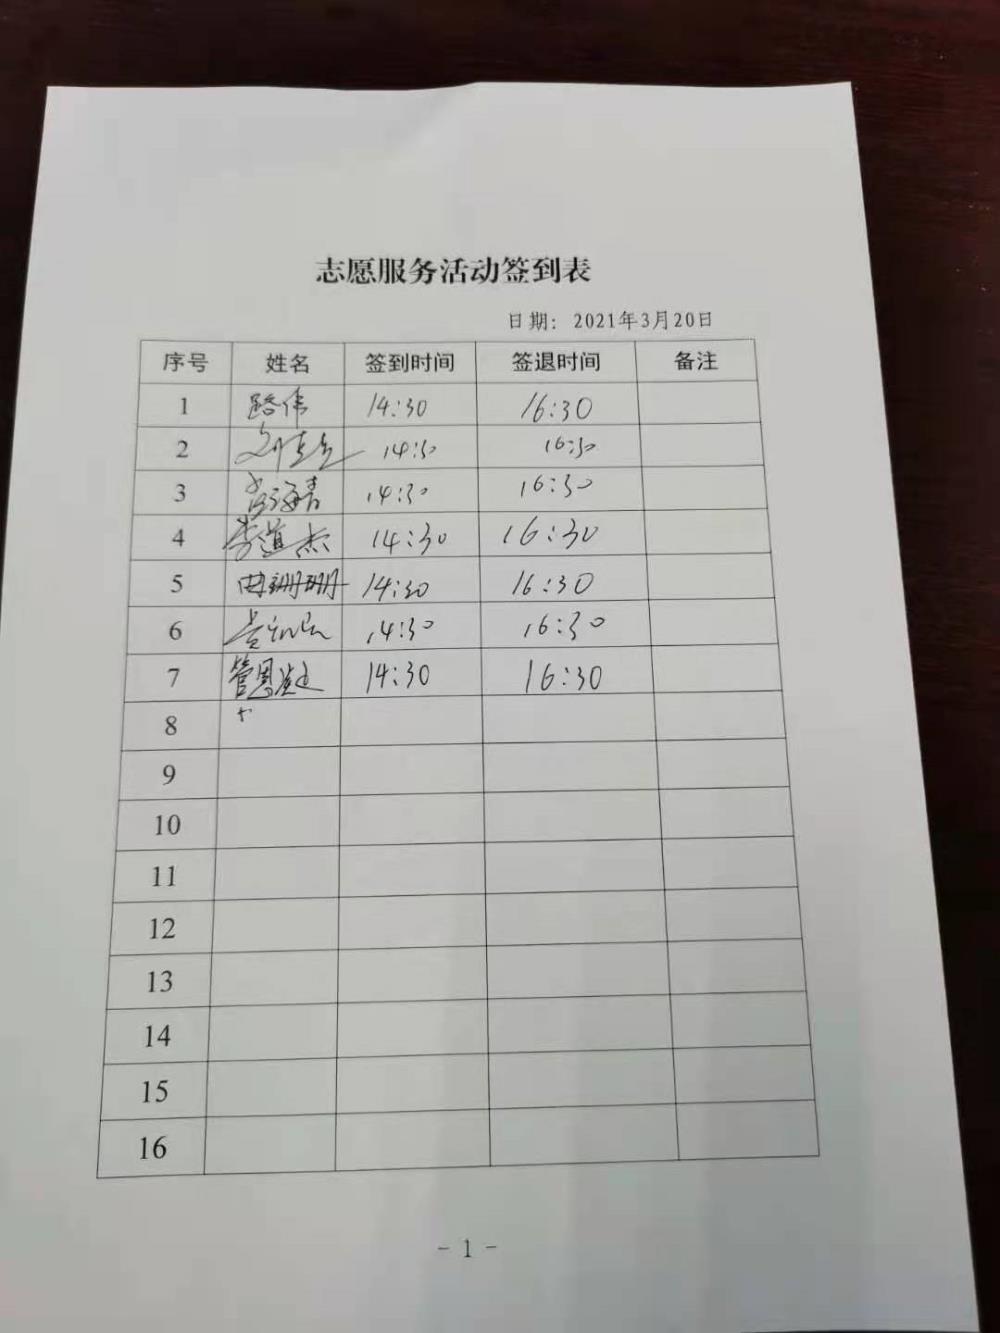 志愿服务活动签到表
日期: 2021年3月20日
序号 姓名 签到时间 签退时间 备注
1 路伟 14:30 16:30
2 14:30 16:30
3 14:30 16:30
4 李道杰 14:30 16:30
5 珊珊 14:30 16:30
6 14:30 16:30
7 管恩 14:30 16:30
8
9
10
11
12
13
14
15
16
- 1 -